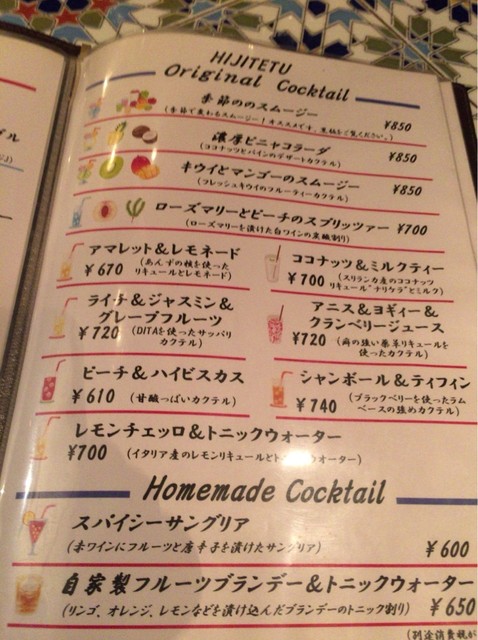 HIJITETU
Original Cocktail
季節ののスムージー
(季節で変わるスムージー！オススメです。黒板をご覧ください。)
¥850
濃厚ピニャコラーダ
(ココナッツとパインのデザートカクテル)
¥850
キウイとマンゴーのスムージー
(フレッシュキウイのフルーティーカクテル)
¥850
ローズマリーとピーチのスプリッツァー ¥700
(ローズマリーを漬けた白ワインの炭酸割り)
アマレット&レモネード
¥670
(あんずの核を使った
リキュールとレモネード)
ココナッツ&ミルクティー
¥700
(スリランカ産のココナッツ
リキュール"ナリケラ"とミルク)
ライチ&ジャスミン&
グレープフルーツ
¥720
(DITAを使ったサッパリ
カクテル)
アニス&ヨギィー&
クランベリージュース
¥720
(癖の強い薬草リキュールを
使ったカクテル)
ピーチ&ハイビスカス
¥610 (甘酸っぱいカクテル)
シャンボール&ティフィン
¥740
(ブラックベリーを使ったラム
ベースの強めカクテル)
レモンチェッロ&トニックウォーター
¥700 (イタリア産のレモンリキュールと
ウォーター)
Homemade Cocktail
スパイシーサングリア
(赤ワインにフルーツと唐辛子を漬けたサングリア)
¥600
自家製フルーツブランデー&トニックウォーター
(リンゴ、オレンジ、レモンなどを漬け込んだブランデーのトニック割り)
¥650
(別途消費税が